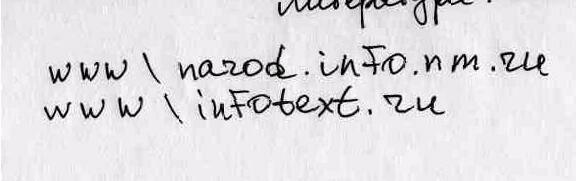 www\narod.info.nm.ru
www\infotext.ru